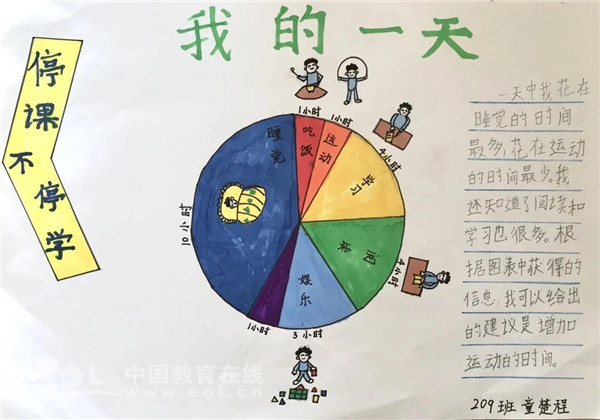 我的一天
停课不停学
1小时
1小时
4小时
4小时
3小时
1小时
10小时
睡觉
吃饭
运动
学习
阅读
娱乐
一天中我花在
睡觉的时间
最多,花在运动
的时间最少。我
还知道了阅读和
学习也很多。根
据图表中获得的
信息,我可以给出
的建议是增加
运动的时间。
209班 童楚程
eol 中国教育在线